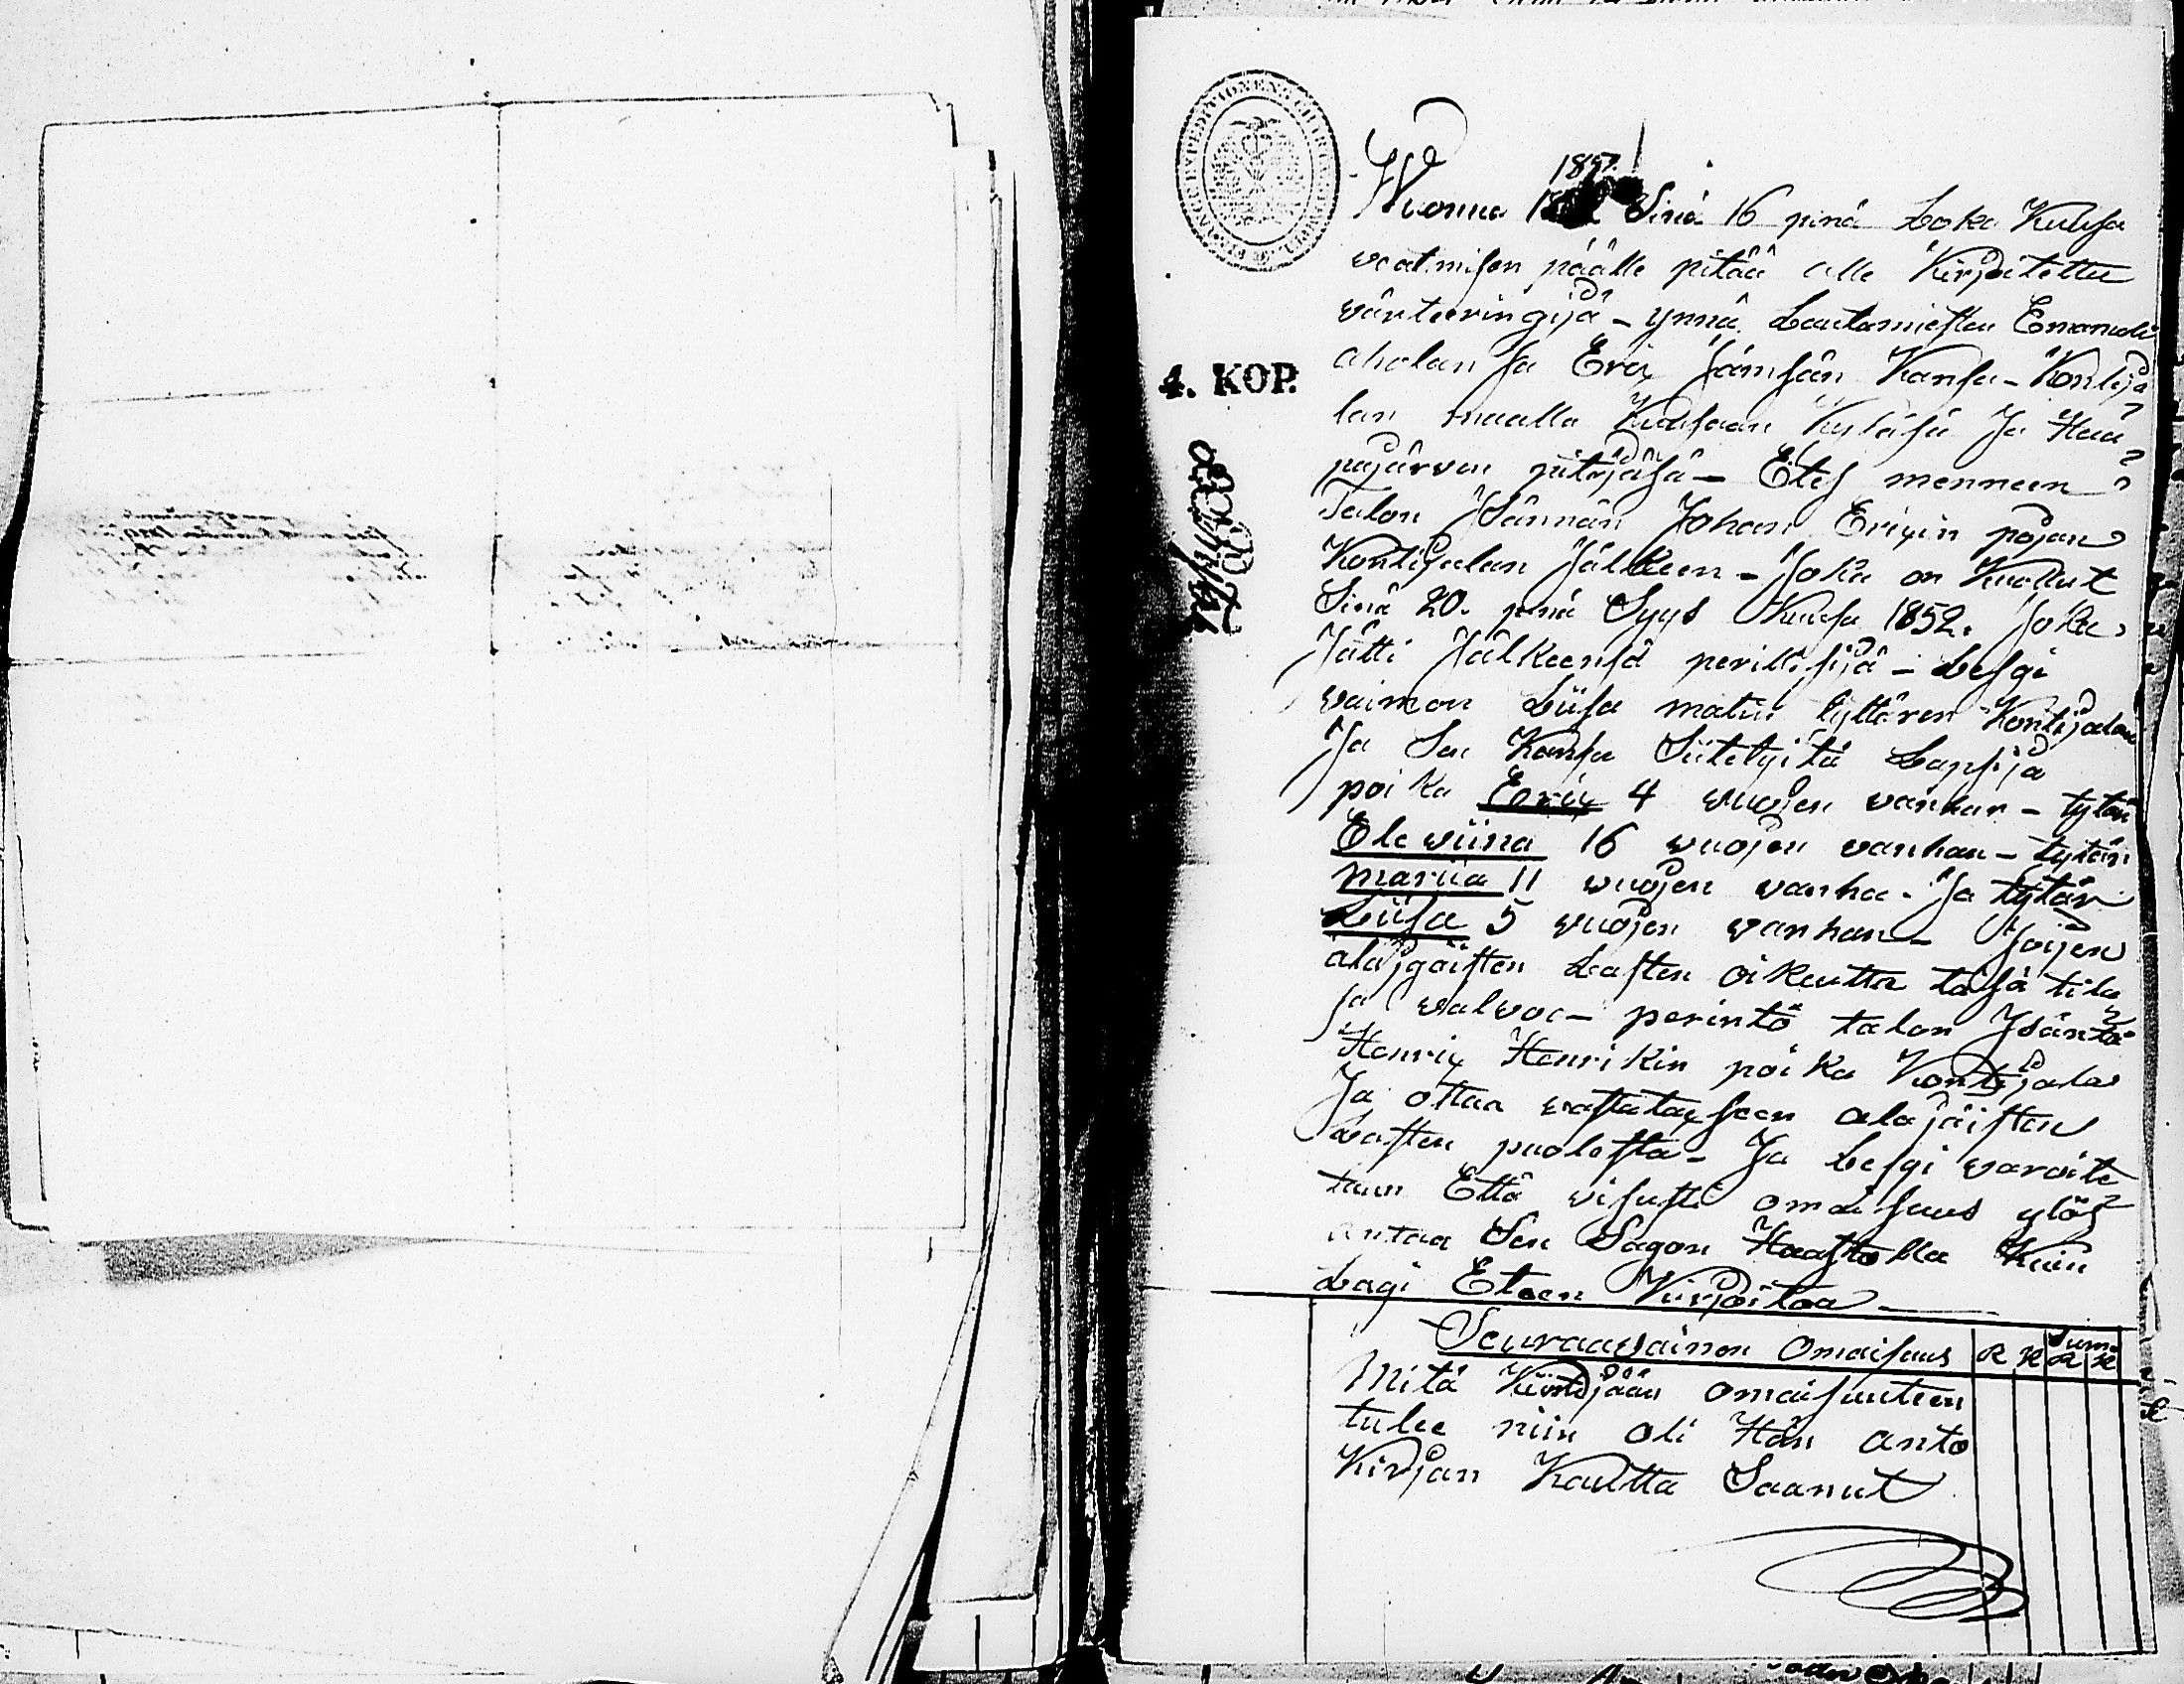 Wuonna 1857. Sinä 16 pnä Loka Kuusa
vaatmisen päälle pitää alle Kirjoitettu
värteeringijä - ynnä Lautamiesten Emanueli
aholan Ja Erix Jämsän Kansa - Kontija
lan maalla Kuusaan Kyläsä Ja Haa
pajärven pitäjäsä - Etes menneen
Talon Isännän Johan Erixin pojan
Kontijalan Jälkeen - Joka on Kuollut
Sinä 20. pnä Syys Kuusa 1852. Joka
Jätti Jälkeensä perillisijä - Lesgi
vaimon Liisa matin tyttären Kontijalan
Ja Sen Kansa Siitetyitä Lapsija
poika Eerix 4 vuojen vanhan - tytön
Ole viina 16 vuojen vanhan - tytön
mariia 11 vuojen vanha. Ja tytär
Liisa 5 vuojen vanhan - Joijen
alajgäisten Lasten oikeutta täsä tila
sa valvoo - perintö talon Isäntä
Henrix Henrikin poika Kontijala
Ja ottaa vastataxseen alajäisten
Lasten puolesta - Ja Lesgi varoite
taan Että visusti omaisuus ylös
antaa Sen Sagon Haastolla Kuin
Lagi Eteen Kirjoitaa
Seuraavainen Omaisuus R K Sum R K
Mitä Kiintijään omaisuuteen
tulee niin oli Hän anto
Kirjan Kautta Saanut
4. KOP.